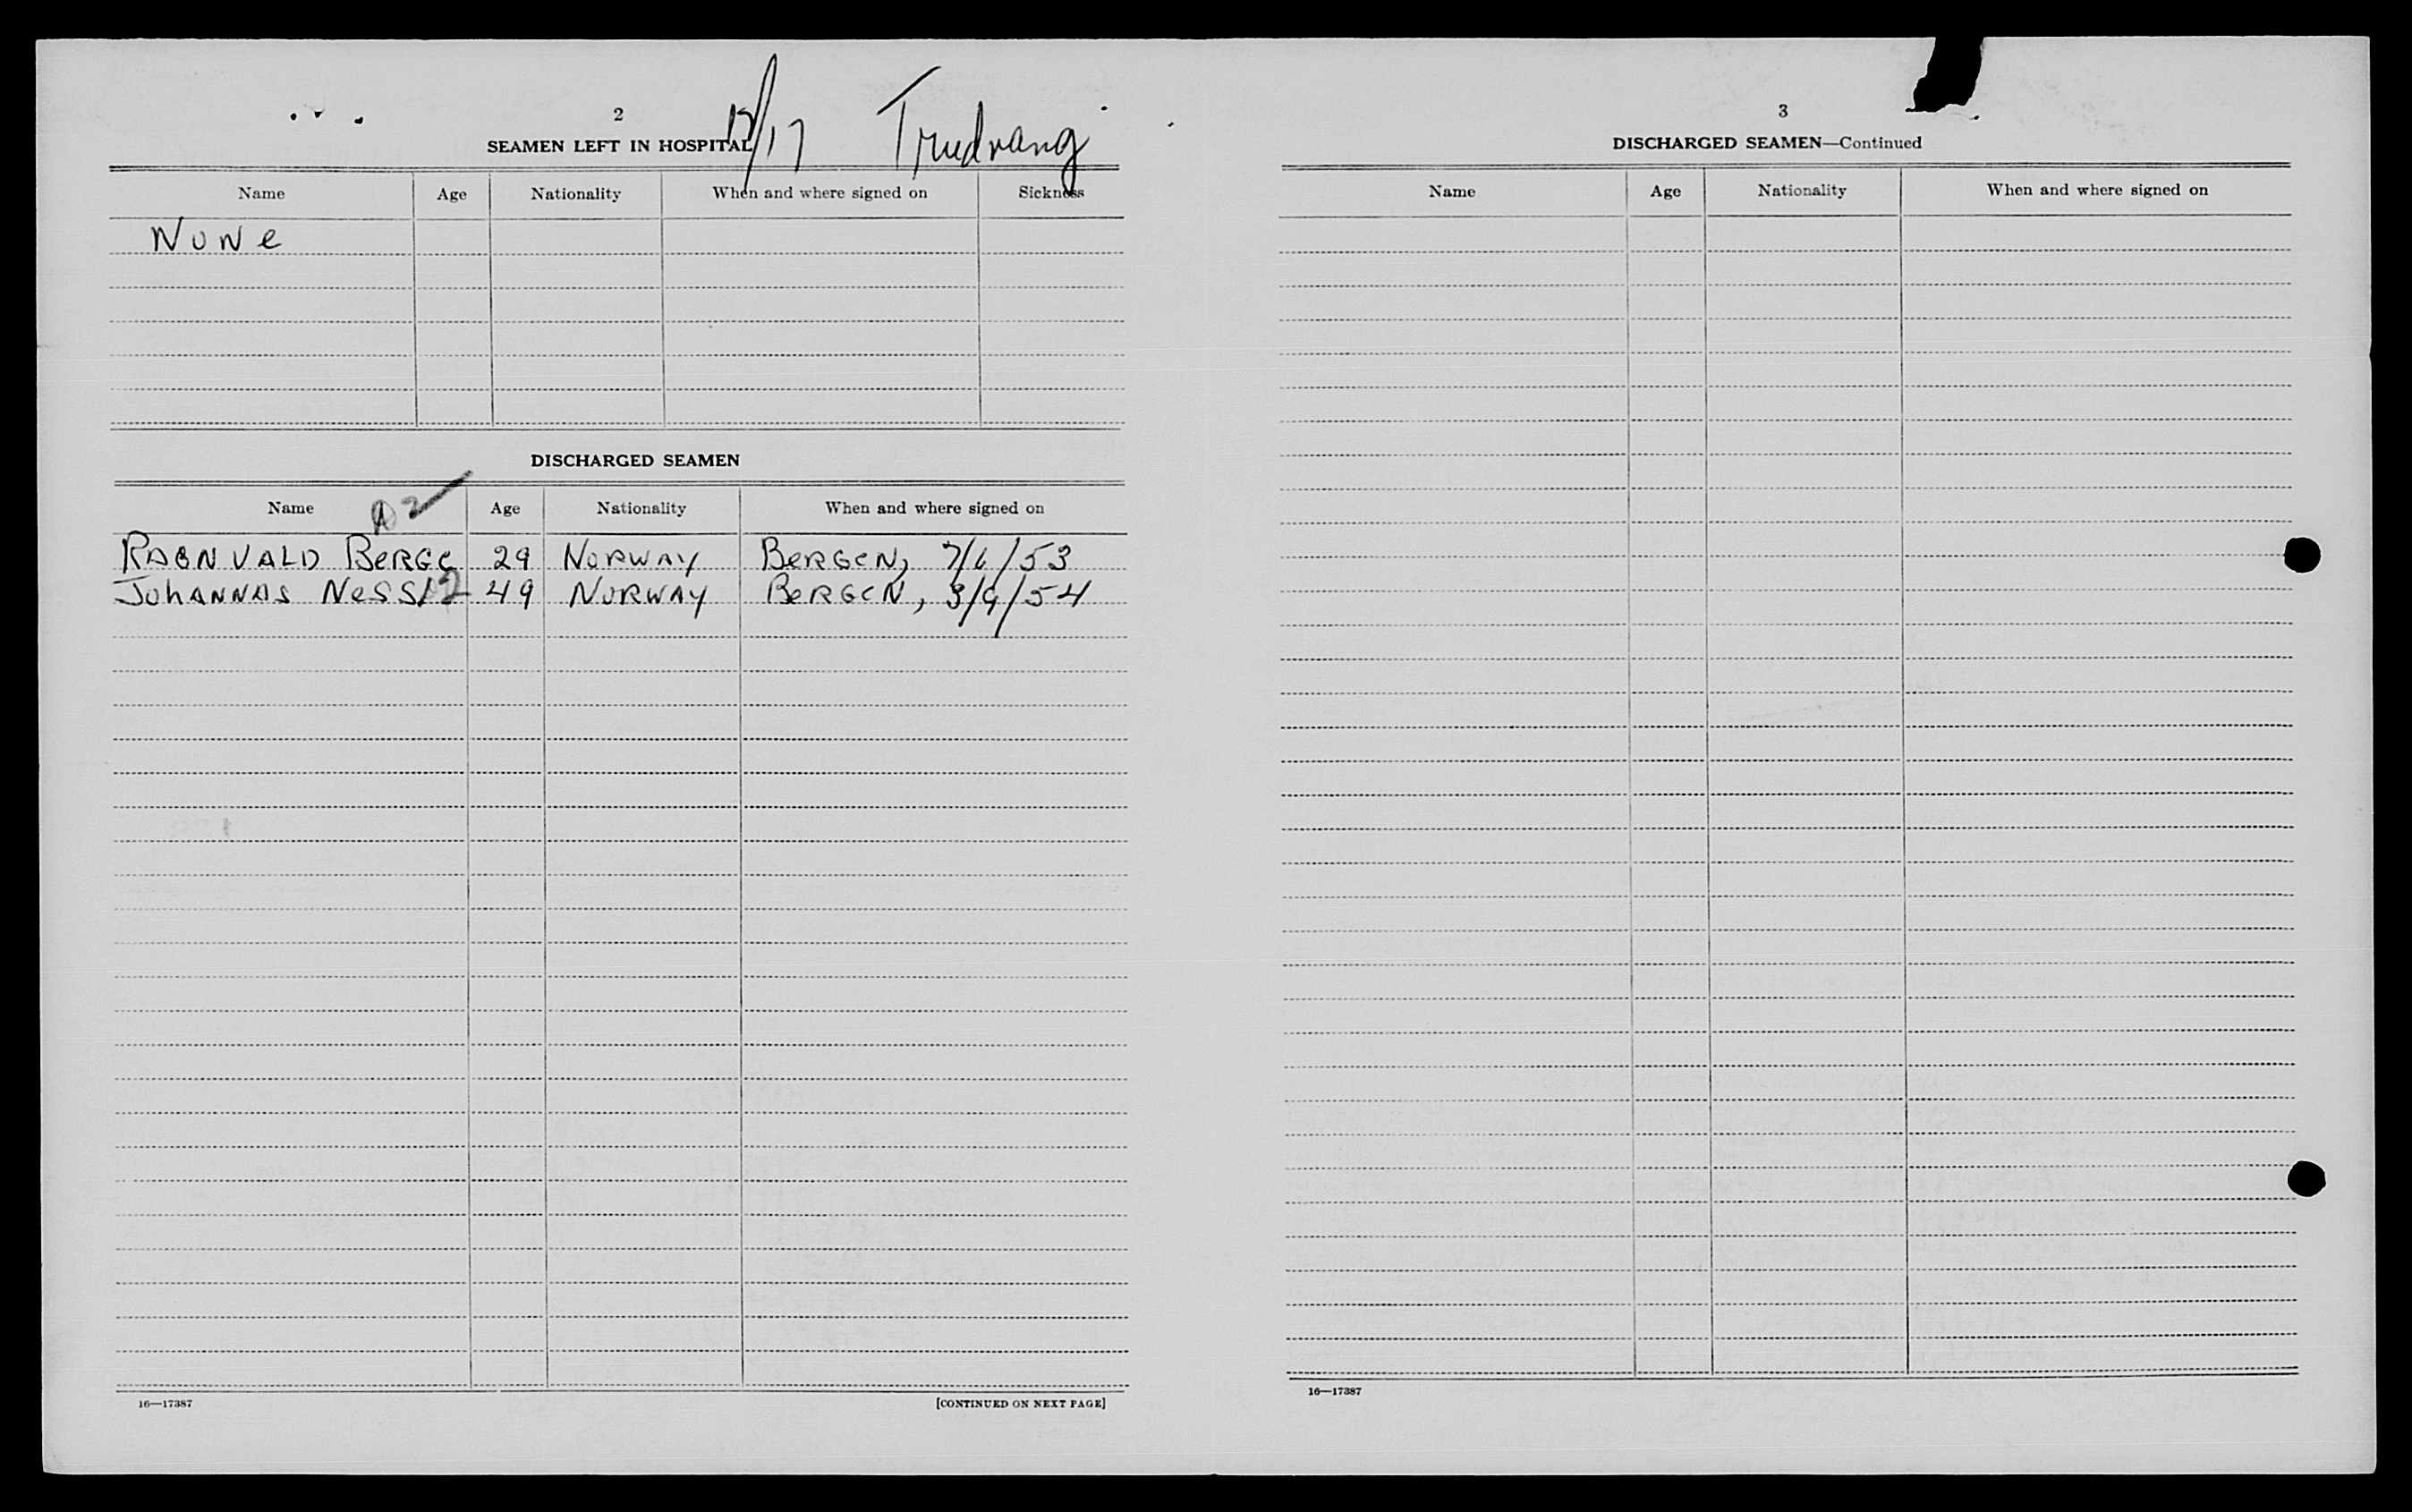 2
12/17 Trudvang
SEAMEN LEFT IN HOSPITAL
Name Age Nationality When and where signed on Sickness
NoNe
DISCHARGED SEAMEN
A2
Name Age Nationality When and where signed on
RAGNVALD BERGE 29 NORWAY BERGEN, 7/1/53
JOHANNAS NESS 49 NORWAY BERGEN, 3/9/54
16—17387 [CONTINUED ON NEXT PAGE]
3
DISCHARGED SEAMEN—Continued
Name Age Nationality When and where signed on
16—17387